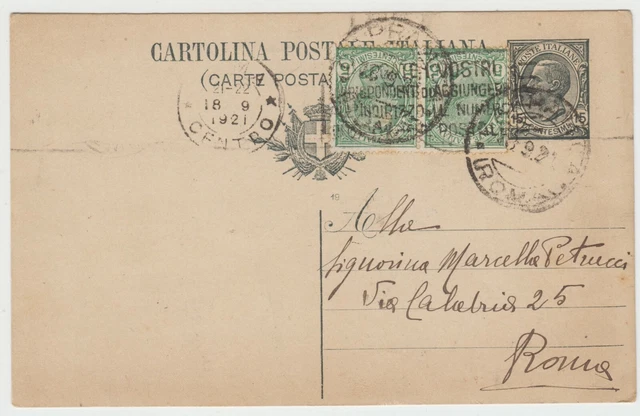 CARTOLINA POSTALE ITALIANA
(CARTE POSTA
POSTE ITALIANE
15 15
21-22
18 9
1921
CENTRO
VOSTRO
AGGIUNGERE
INDIRIZZO IL NUMERO
POSTALE
ROMA
19
Alla
Signorina Marcella Petrucci
Via Calabria 25
Roma